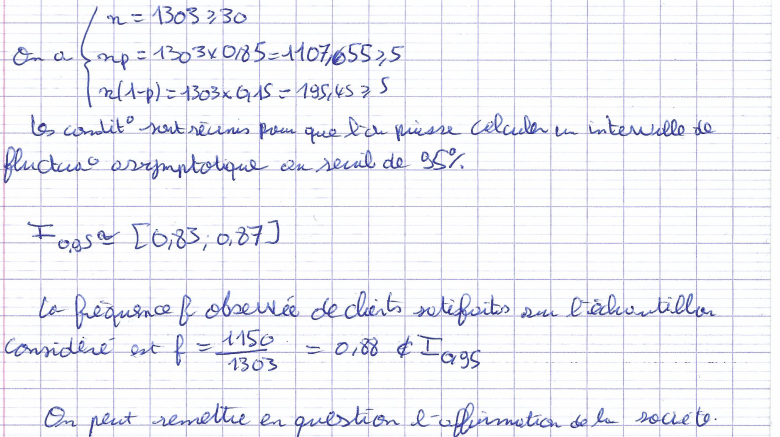 On a { n = 1303 ⩾ 30
np = 1303 × 0,85 = 1107,55 ⩾ 5
n(1-p) = 1303 × 0,15 = 195,45 ⩾ 5
les condit° sont réunies pour que l'on puisse calculer un intervalle de
fluctua° asymptotique au seuil de 95%.
I0,95 ≃ [0,83; 0,87]
La fréquence f observée de clients satisfaits sur l'échantillon
considéré est f = 1150/1303 = 0,88 ∉ I0,95
On peut remettre en question l'affirmation de la société.